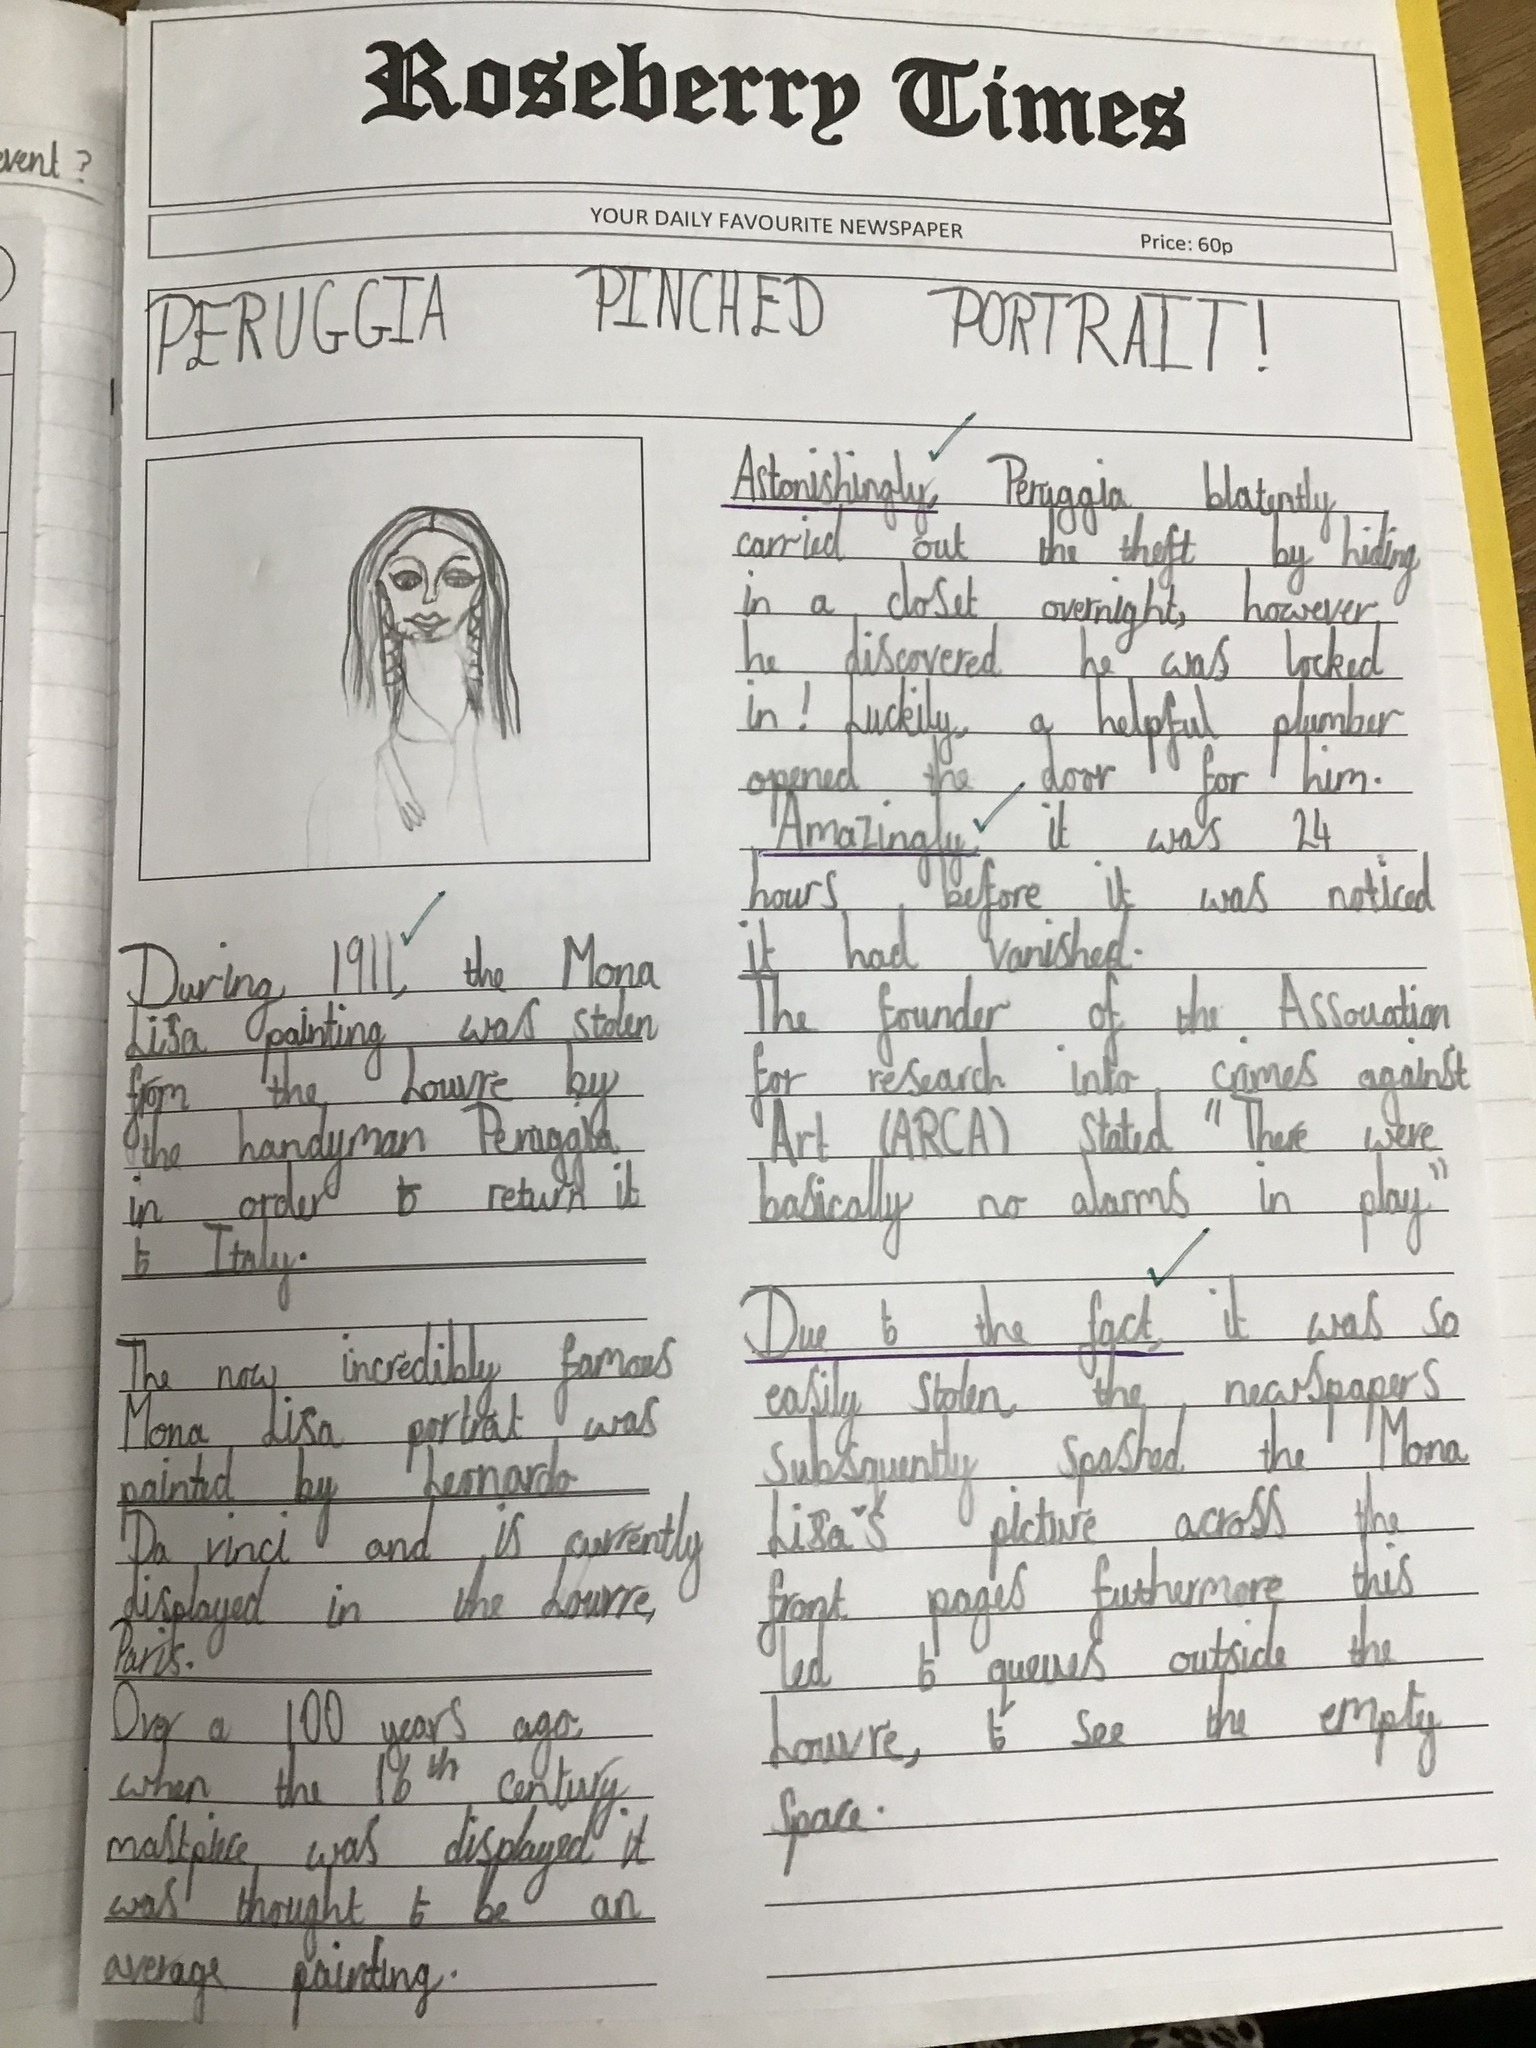 event?
Roseberry Times
YOUR DAILY FAVOURITE NEWSPAPER
Price: 60p
PERUGGIA PINCHED PORTRAIT!
During 1911, the Mona
Lisa painting was stolen
from the Louvre by
the handyman Peruggia
in order to return it
to Italy.
The now incredibly famous
Mona Lisa portrait was
painted by Leonardo
Da vinci and is currently
displayed in the Louvre,
Paris.
Over a 100 years ago,
when the 16th century
mastpiece was displayed it
was thought to be an
average painting.
Astonishingly, Peruggia blatently
carried out the theft by hiding
in a closet overnight, however,
he discovered he was locked
in! Luckily, a helpful plumber
opened the door for him.
Amazingly, it was 24
hours before it was noticed
it had vanished.
The founder of the Assouation
for research into crimes against
Art (ARCA) stated "There were
basically no alarms in play"
Due to the fact, it was so
easily stolen, the newspapers
subsquently spashed the Mona
Lisa's picture across the
front pages futhermore this
led to queues outside the
Louvre, to see the empty
space.